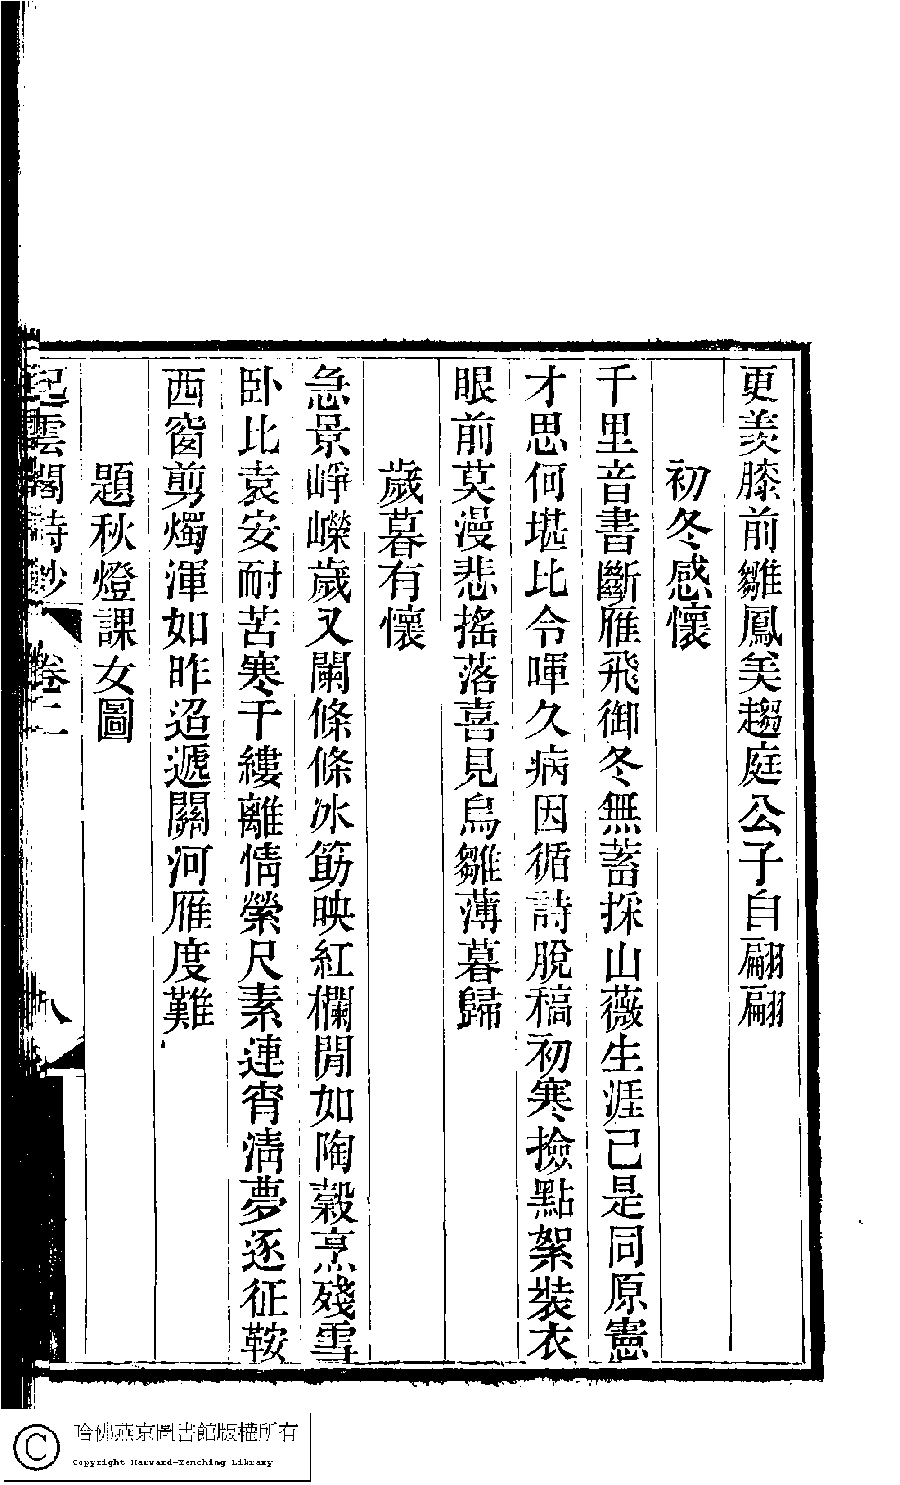 更羨膝前雛鳳美趨庭公子自翩翩
初冬感懷
千里音書斷雁飛御冬無蓄採山薇生涯已是同原憲
才思何堪比令暉久病因循詩脫稿初寒撿點絮裝衣
眼前莫漫悲搖落喜見烏雛薄暮歸
歲暮有懷
急景崢嶸歲又闌條條冰筯映紅欄閒如陶穀烹殘雪
臥比袁安耐苦寒千縷離情縈尺素連宵清夢逐征鞍
西窗剪燭渾如昨迢遞關河雁度難
題秋燈課女圖
起雲閣詩鈔 卷二 八
哈佛燕京圖書館版權所有
Copyright Harvard-Yenching Library